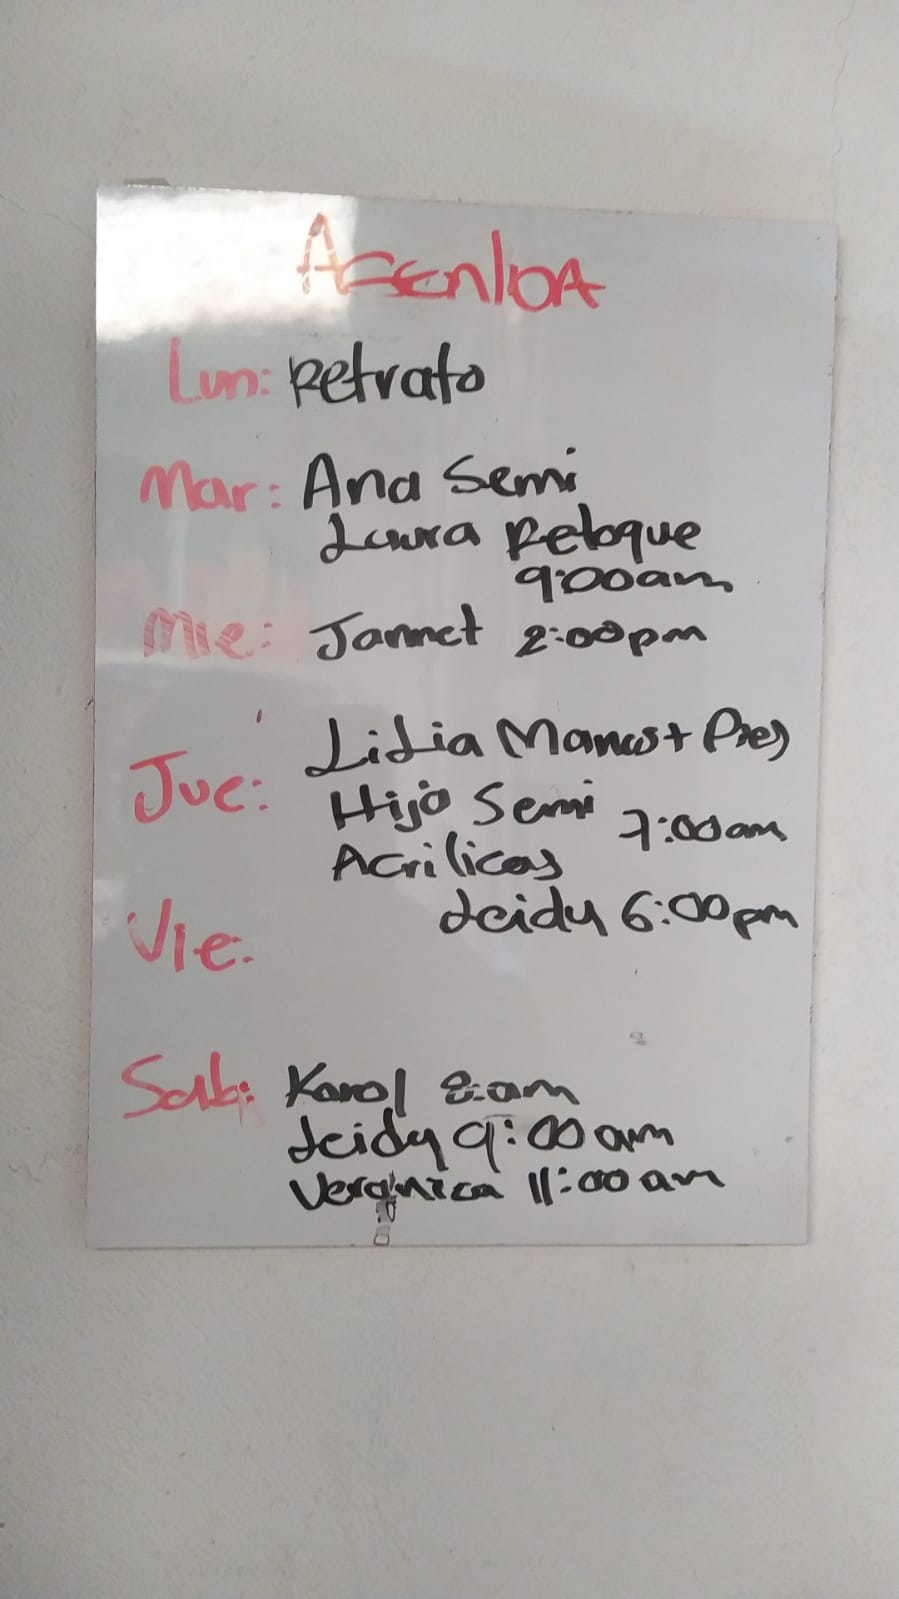 AGENDA
Lun: Retrato
Mar: Ana Semi
Laura Retoque
9:00am
Mie: Jannet 2:00pm
Jue: Lidia Manos + Pies
Hijo Semi 7:00am
Acrilicas
Leidy 6:00pm
Vie:
Sab: Karol 8:am
Leidy 9:00am
Veronica 11:00am